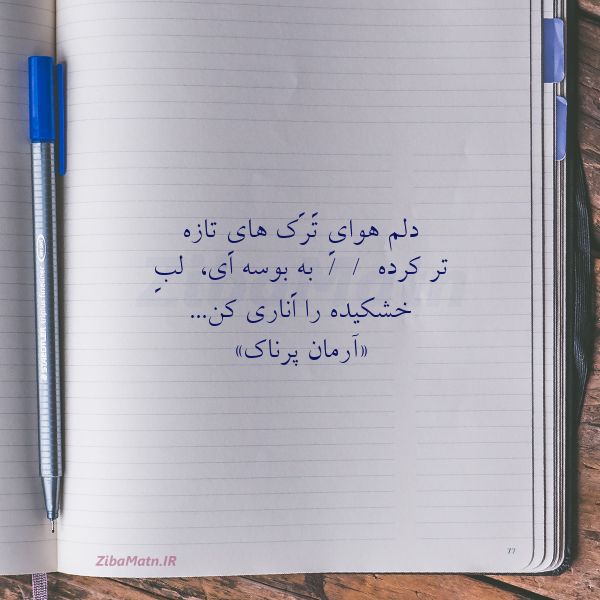 دلم هوایِ تََرَک های تازه
تر کرده / / به بوسه اَی، لبِ
خشکیده را اَناری کن...
«آرمان پرناک»
ZibaMatn
STAEDTLER triplus fineliner
ZibaMatn.IR
77